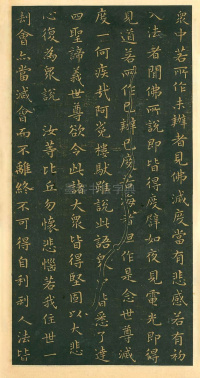 眾中若所作未辦者見佛滅度當有悲感若有初
入法者聞佛所說即皆得度譬如夜見電光即得
見道若所作已辦已度苦海者但作是念世尊滅
度一何疾哉阿㝹樓馱雖說此語眾中皆悉了達
四聖諦義世尊欲令此諸大眾皆得堅固以大悲
心復為眾說汝等比丘勿懷悲惱若我住世一
劫會亦當滅會而不離終不可得自利利人法皆